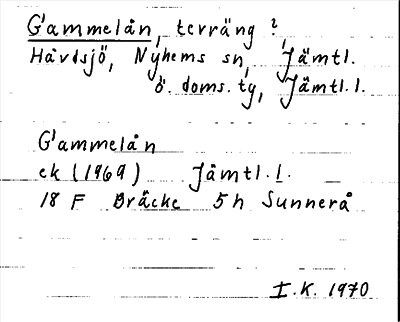 Gammelån, terräng ?
Håvdsjö, Nyhems sn, Jämtl.
ö. doms. ty, Jämtl. l.
Gammelån
ek (1969) Jämtl. l.
18 F Bräcke 5h Sunnerå
I.K. 1970